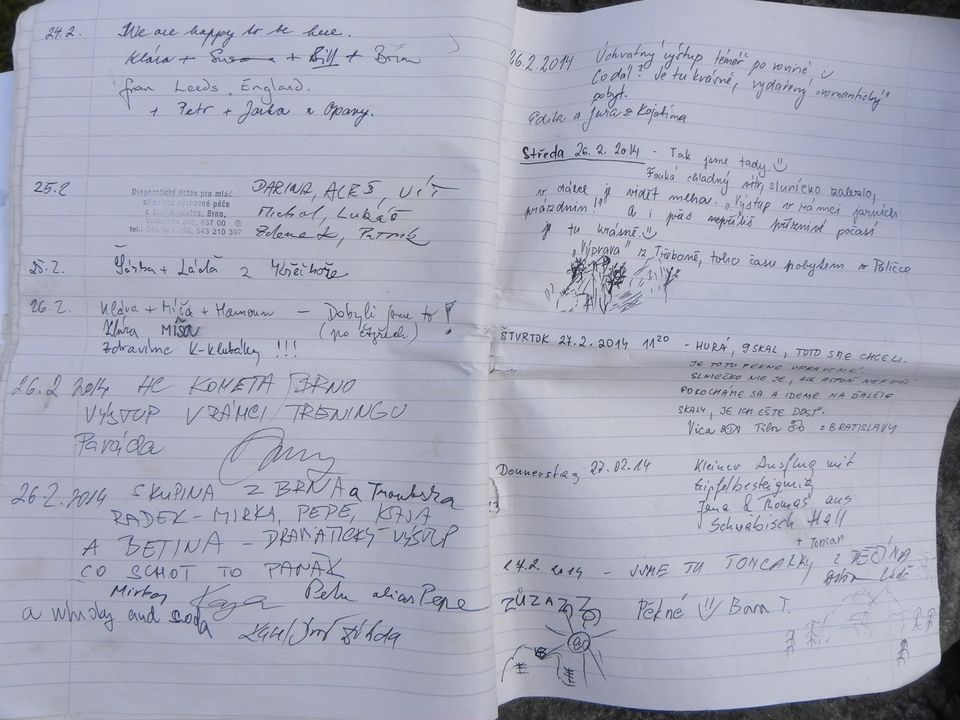 24.2. We are happy to be here.
Klára + Susana + Bill + Brian
from Leeds, England.
+ Petr + Jarka z Opavy.
25.2 DARINA, ALEŠ,
Michal, Lukáš
Zdeněk, Patrik
Diagnostický ústav pro mládež
výchovné péče
Brno,
637 00
543 210 397
25.2. Šárka + Láďa z
26.2. Klára + Míša + Hamoun – Dobyli jsme to!
Klára Míša (po čtyřech)
Zdravíme K-Klubáky !!!
26.2 2014 HC KOMETA BRNO
VÝSTUP V RÁMCI TRENINGU
Paráda
26.2.2014 SKUPINA Z BRNA a Troubska
RADEK – MIRKA, PEPE, KAJA
A BETINA – DRAMATICKÝ VÝSTUP
CO SCHOT TO PANÁK
Mirka Kaya Petr alias Pepe
a whisky and soda
26.2.2014 Úchvatný výstup téměř po rovině,
Co dál? Je tu krásné, vydařený „romantický“
pobyt.
a Jura z Kojetína
Středa 26.2.2014 – Tak jsme tady.
Fouká chladný vítr, sluníčko zalezlo,
v dálce je vidět mlha. „Výstup v rámci jarních
prázdnin!“ A i přes nepříliš příznivé počasí
je tu krásně.
„Výprava“ z Třeboně, toho času pobytem v Poličce
ŠTVRTOK 27.2.2014 11 20 – HURÁ, 9 SKAL, TOTO SME CHCELI.
JE TOTU PEKNE UPRAVENÉ.
SLNIEČKO NIE JE, ALE ASPOŇ NEPRŠÍ
POKOCHÁME SA A IDEME NA ĎALŠIE
SKALY, JE ICH EŠTE DOSŤ.
Vica Tibor Z BRATISLAVY
Donnerstag 27.02.14 Kleiner Ausflug mit
Gipfelbesteigung
Jana & Thomas aus
Schwäbisch Hall
+ Tonsar
27.2 2014 – JSME TU TONCARKY z DĚČÍNA
ZŮZA
Pěkné Bára T.